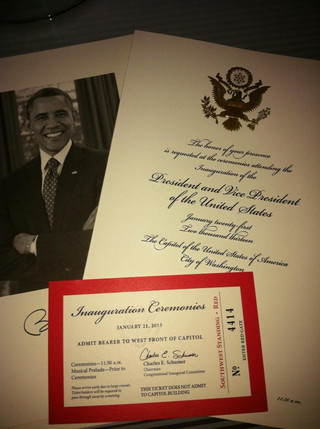 The honor of your presence
is requested at the ceremonies attending the
Inauguration of the
President and Vice President
of the United States
January twenty-first
Two thousand thirteen
The Capitol of the United States of America
City of Washington
11:30 a.m.
Inauguration Ceremonies
JANUARY 21, 2013
ADMIT BEARER TO WEST FRONT OF CAPITOL
Ceremonies—11:30 a.m.
Musical Prelude—Prior to
Ceremonies
Charles E. Schumer
Charles E. Schumer
Chairman
Congressional Inaugural Committee
Please arrive early due to large crowds.
Ticket holders will be required to
pass through security screening.
THIS TICKET DOES NOT ADMIT
TO CAPITOL BUILDING
SOUTHWEST STANDING • RED
No 4414
ENTER RED GATE